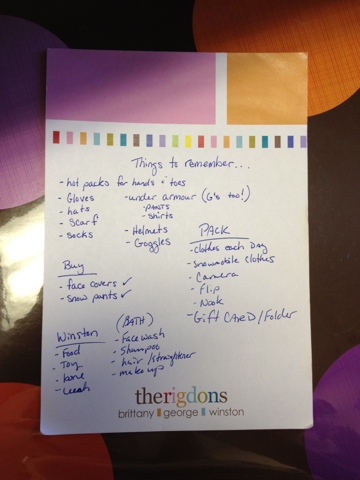 Things to remember...
- hot packs for hands & toes
- Gloves
- hats
- Scarf
- Socks
- under armour (G's too!)
- PANTS
- Shirts
- Helmets
- Goggles
Buy
- face covers ✓
- snow pants ✓
PACK
- clothes each Day
- Snowmobile clothes
- Camera
- Flip
- Nook
- Gift CARD/Folder
Winston
- Food
- Toy
- bone
- Leash
(BATH)
- Facewash
- Shampoo
- hair/straightener
- makeup
therigdons
brittany george winston